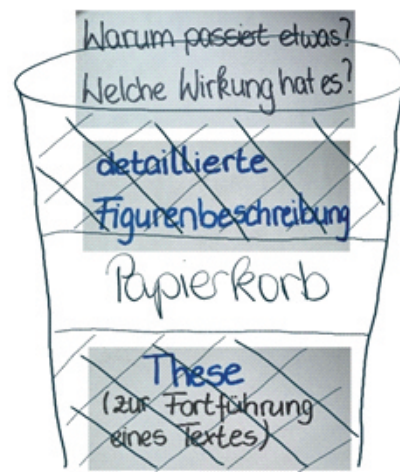 Warum passiet etwas?
Welche Wirkung hat es?
detaillierte
Figurenbeschreibung
Papierkorb
These
(zur Fortführung
eines Textes)